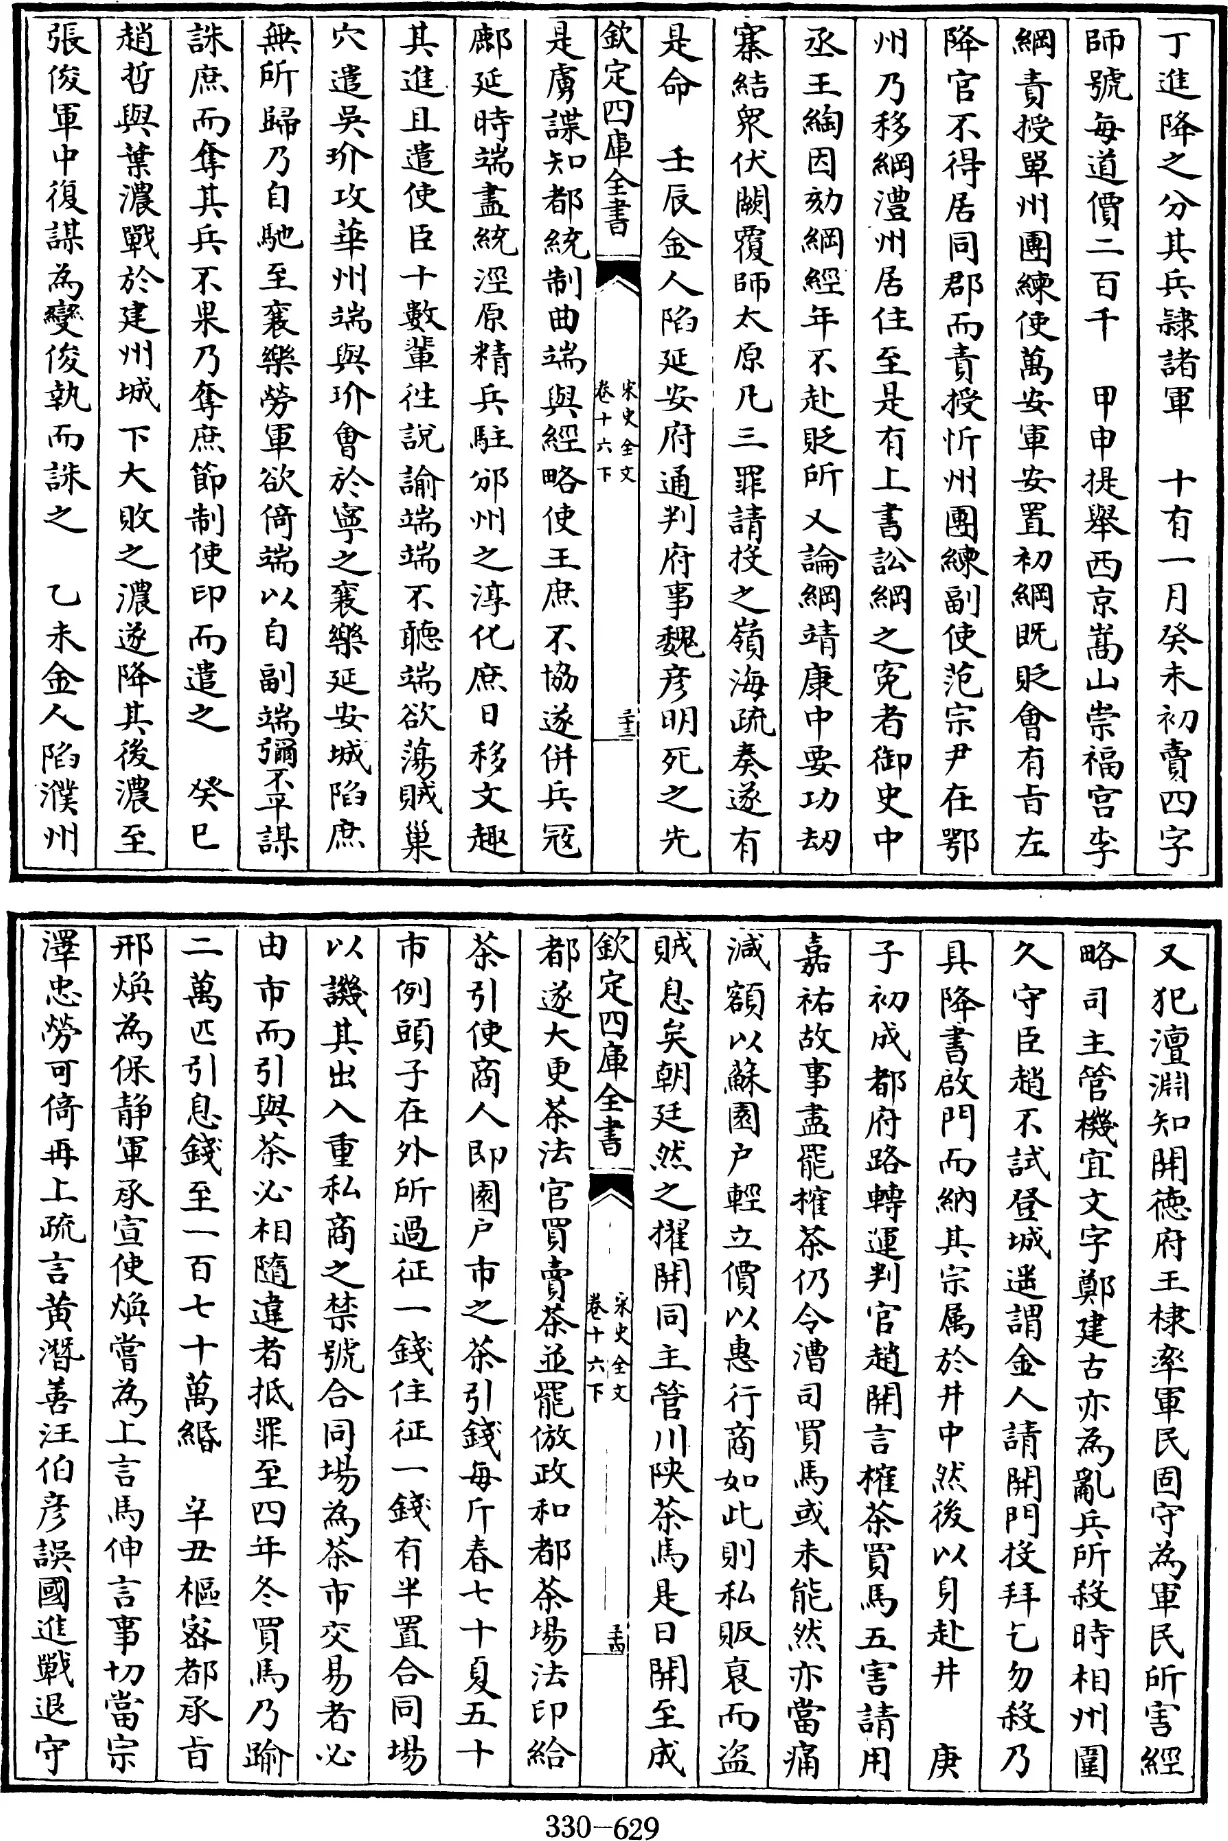 丁進降之分其兵隷諸軍　十有一月癸未初賣四字
師號每道價二百千　甲申提舉西京嵩山崇福宫李
綱責授單州團練使萬安軍安置初綱既貶會有㫖左
降官不得居同郡而責授忻州團練副使范宗尹在鄂
州乃移綱澧州居住至是有上書訟綱之寃者御史中
丞王綯因劾綱經年不赴貶所又論綱靖康中要功刼
寨結衆伏闕覆師太原凡三罪請投之嶺海疏奏遂有
是命　壬辰金人陷延安府通判府事魏彦明死之先
欽定四庫全書
宋史全文
卷十六下
三十三
是虜諜知都統制曲端與經略使王庶不協遂併兵冦
鄜延時端盡統涇原精兵駐邠州之淳化庶日移文趣
其進且遣使臣十數輩徃說諭端端不聽端欲蕩賊巢
穴遣吳玠攻華州端與玠會於寧之襄樂延安城陷庶
無所歸乃自馳至襄樂勞軍欲倚端以自副端彌不平謀
誅庶而奪其兵不果乃奪庶節制使印而遣之　癸巳
趙哲與葉濃戰於建州城下大敗之濃遂降其後濃至
張俊軍中復謀為變俊執而誅之　乙未金人陷濮州
又犯澶淵知開徳府王棣率軍民固守為軍民所害經
略司主管機宜文字鄭建古亦為亂兵所殺時相州圍
久守臣趙不試登城遥謂金人請開門投拜乞勿殺乃
具降書啟門而納其宗屬於井中然後以身赴井　庚
子初成都府路轉運判官趙開言榷茶買馬五害請用
嘉祐故事盡罷榷茶仍令漕司買馬或未能然亦當痛
減額以蘇園户輕立價以惠行商如此則私販衰而盗
賊息矣朝廷然之擢開同主管川陜茶馬是日開至成
欽定四庫全書
宋史全文
卷十六下
三十四
都遂大更茶法官買賣茶並罷倣政和都茶場法印給
茶引使商人即園户市之茶引錢每斤春七十夏五十
市例頭子在外所過征一錢住征一錢有半置合同場
以譏其出入重私商之禁號合同場為茶市交易者必
由市而引與茶必相隨違者抵罪至四年冬買馬乃踰
二萬匹引息錢至一百七十萬緡　辛丑樞宻都承㫖
邢焕為保静軍承宣使焕嘗為上言馬伸言事切當宗
澤忠勞可倚再上疏言黄潛善汪伯彦誤國進戰退守
330-629